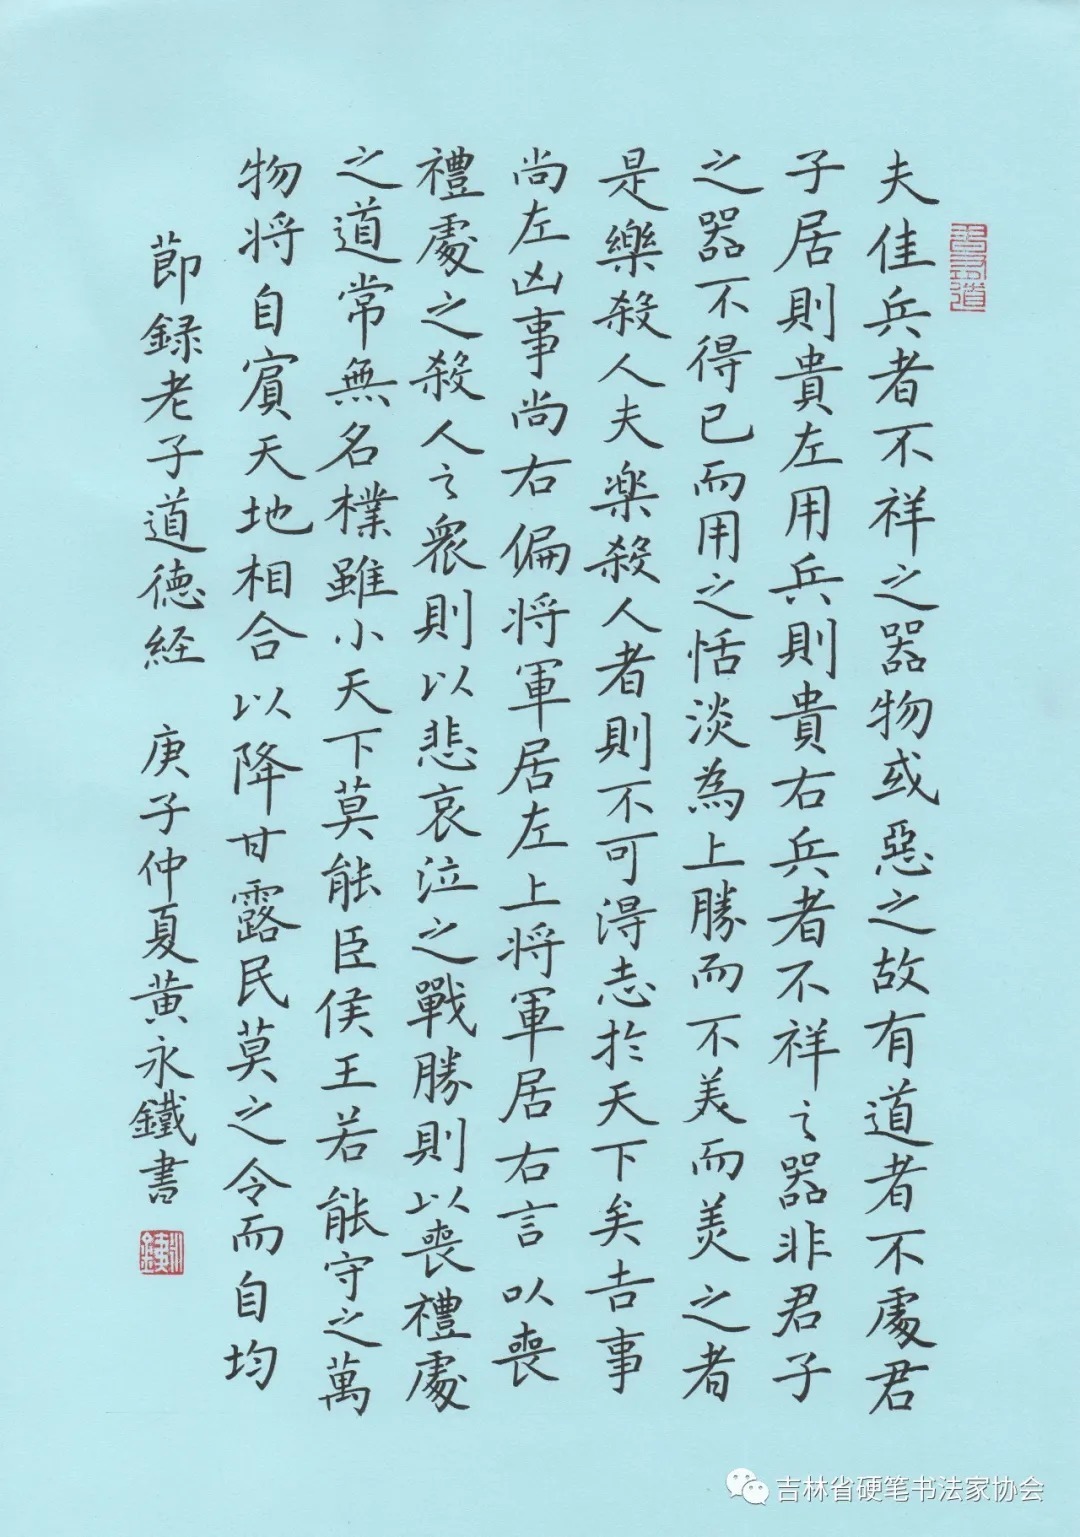 夫佳兵者不祥之器物或惡之故有道者不處君
子居則貴左用兵則貴右兵者不祥之器非君子
之器不得已而用之恬淡為上勝而不美而美之者
是樂殺人夫楽殺人者則不可得志於天下矣吉事
尚左凶事尚右偏将軍居左上将軍居右言以喪
禮處之殺人之衆則以悲哀泣之戰勝則以喪禮處
之道常無名樸雖小天下莫能臣侯王若能守之萬
物将自賓天地相合以降甘露民莫之令而自均
節録老子道德経 庚子仲夏黄永鐵書
吉林省硬笔书法家协会